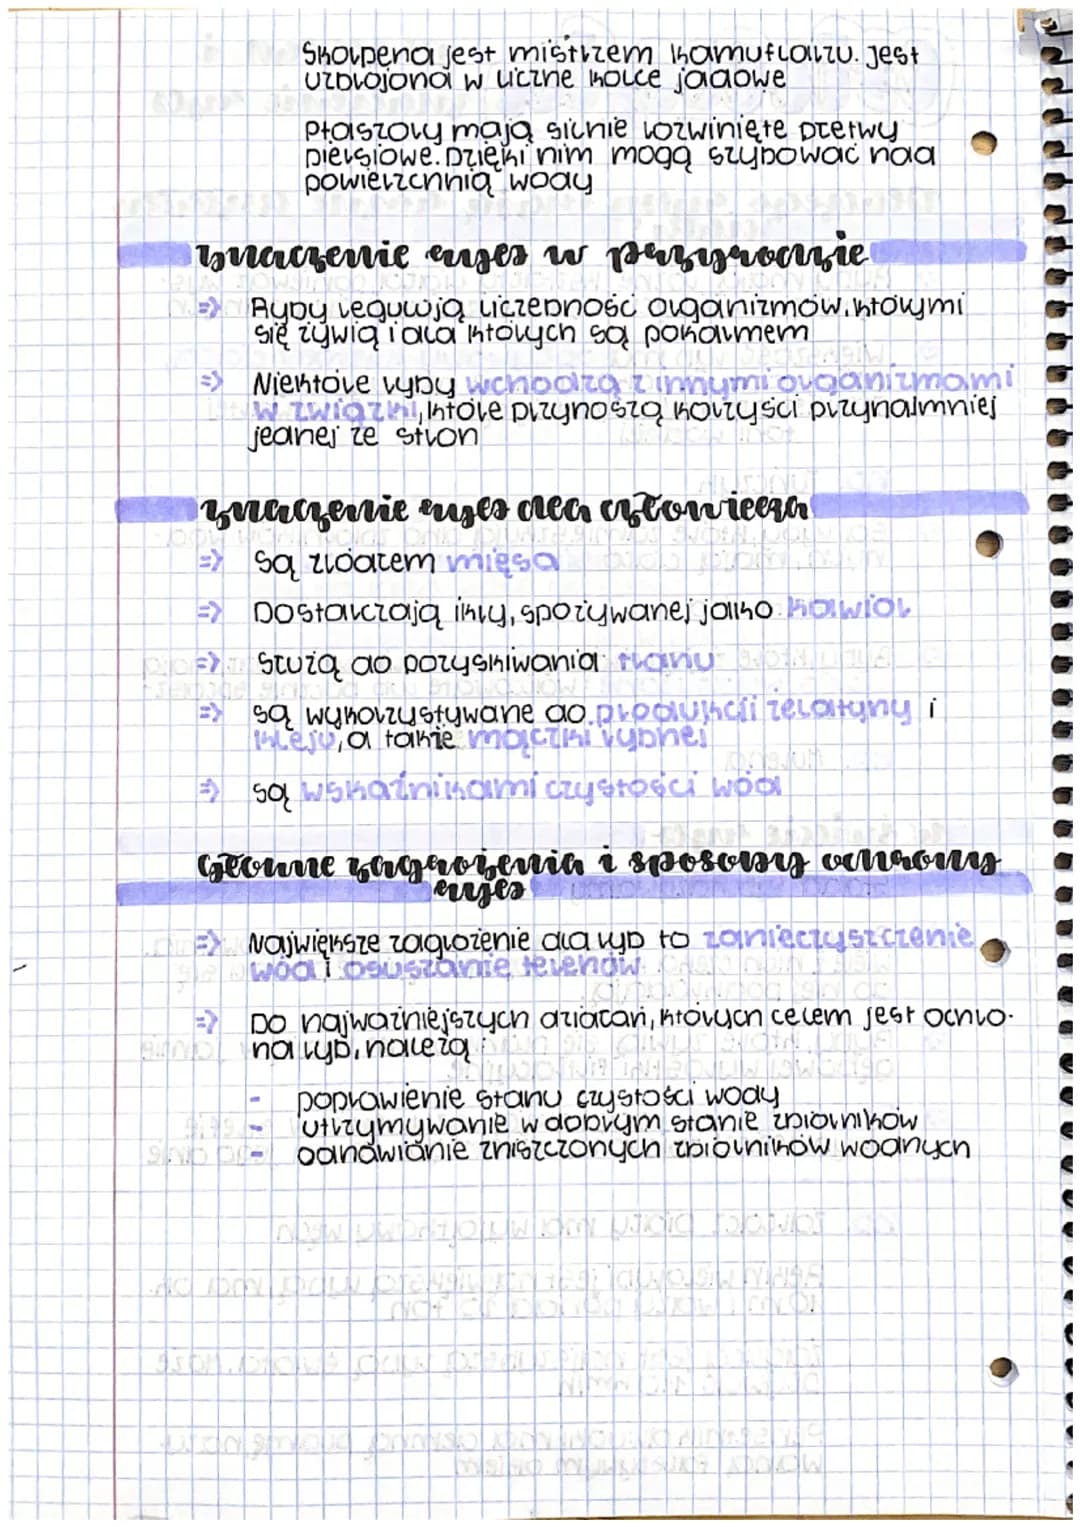 Skorpena jest mistrzem kamuflarzu. Jest
uzbrojona w liczne kolce jadowe
Ptaszory mają silnie rozwinięte płetwy
piersiowe. Dzięki nim mogą szybować nad
powierzchnią wody
Znaczenie ryb w przyrodzie
=> Ryby regulują liczebność organizmów, którymi
się żywią i dla których są pokarmem
=> Niektóre ryby wchodzą z innymi organizmami
w związki, które przynoszą korzyści przynajmniej
jednej ze stron
Znaczenie ryb dla człowieka
=> Są źródłem mięsa
=> Dostarczają ikry, spożywanej jako kawior
=> Służą do pozyskiwania tranu
=> Są wykorzystywane do produkcji żelatyny i
kleju, a także mączki rybnej
=> są wskaźnikami czystości wód
Główne zagrożenia i sposoby ochrony
ryb
=> Największe zagrożenie dla ryb to zanieczyszczenie
wód i osuszanie terenów
=> Do najważniejszych działań, których celem jest ochro-
na ryb, należą:
- poprawienie stanu czystości wody
- utrzymywanie w dobrym stanie zbiorników
- odnawianie zniszczonych zbiorników wodnych